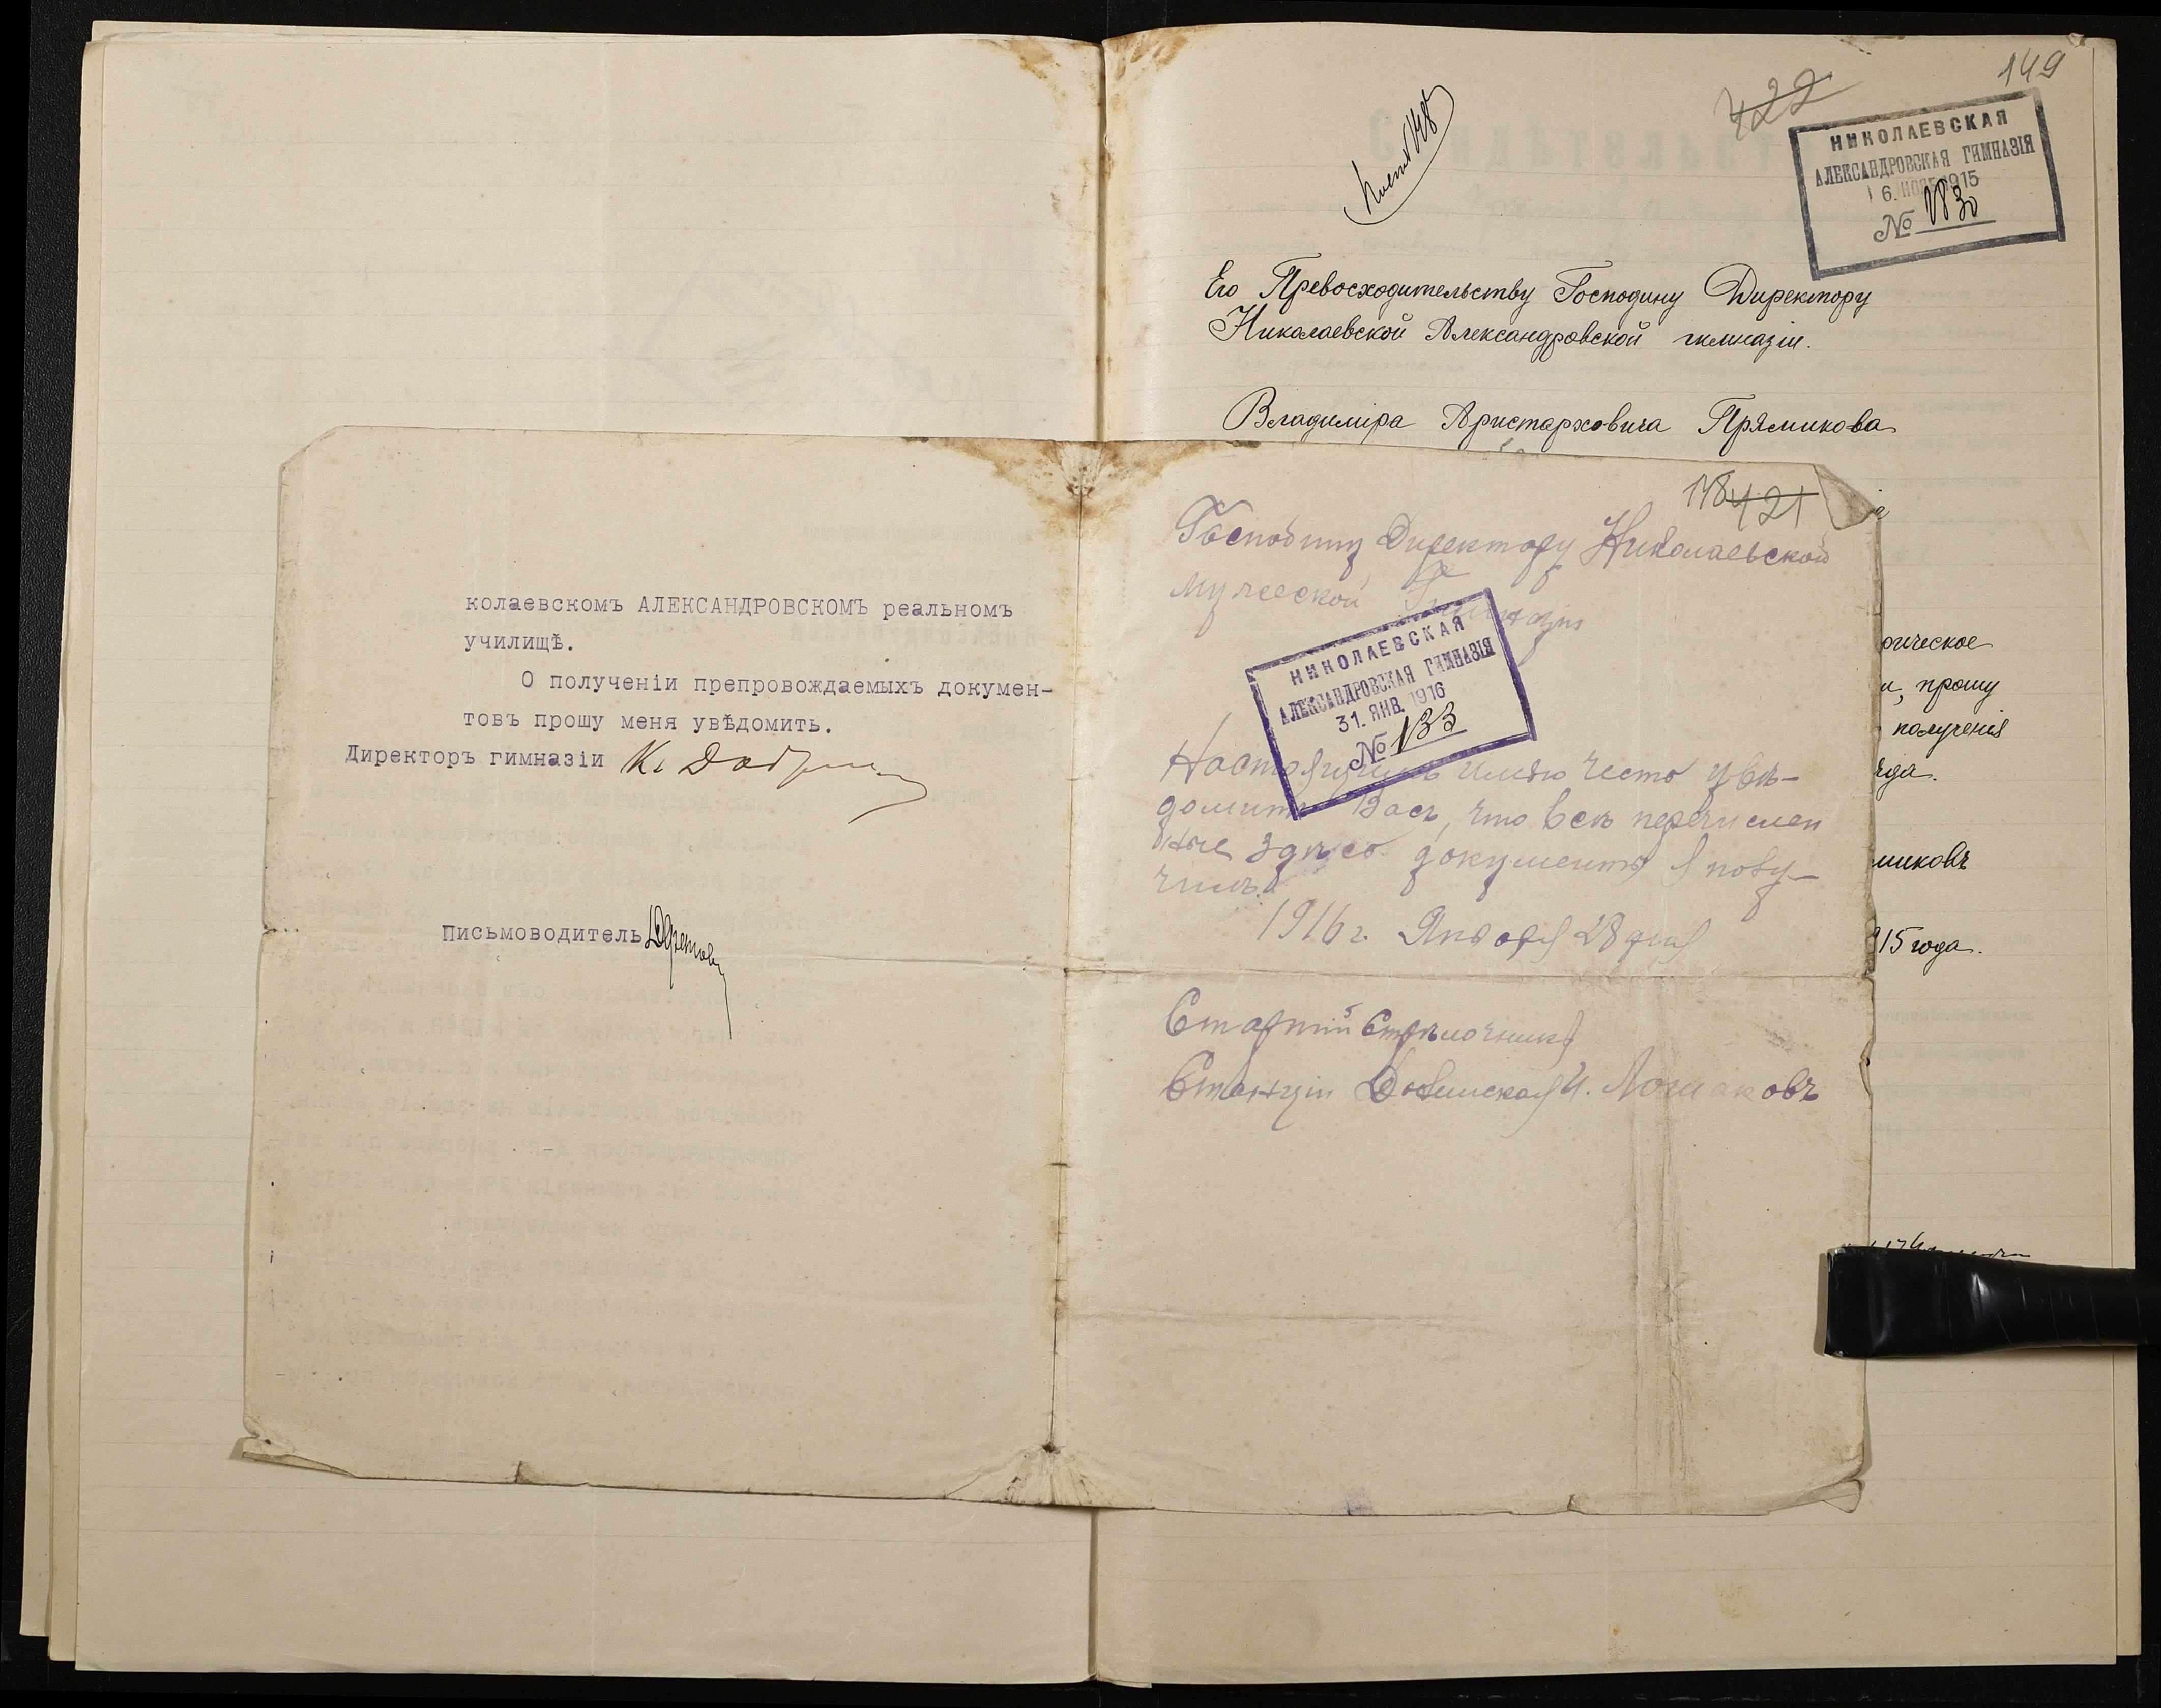 149
422
НИКОЛАЕВСКАЯ
АЛЕКСАНДРОВСКАЯ ГИМНАЗІЯ
6. НОЯБ 1915
№ 1830
Его Превосходительству Господину Директору
Николаевской Александровской гимназіи.
Владиміра Аристарховича Прямикова
рическое
и, прошу
получения
да.
миковъ
915 года.
колаевскомъ АЛЕКСАНДРОВСКОМЪ реальномъ
училищѣ.
О полученіи препровождаемыхъ докумен-
товъ прошу меня увѣдомить.
Директоръ гимназіи К.
Письмоводитель
148 421
Господину Директору Николаевской
мужеской Гимназіи
НИКОЛАЕВСКАЯ
АЛЕКСАНДРОВСКАЯ ГИМНАЗІЯ
31. ЯНВ. 1916
№ 133
Настоящимъ имѣю честь увѣ-
домить Васъ, что всѣ перечислен
ные здѣсь документы я полу-
чилъ.
1916 г. Января 28 дня
Старшій Стрѣлочникъ
Станціи И. Лошаковъ